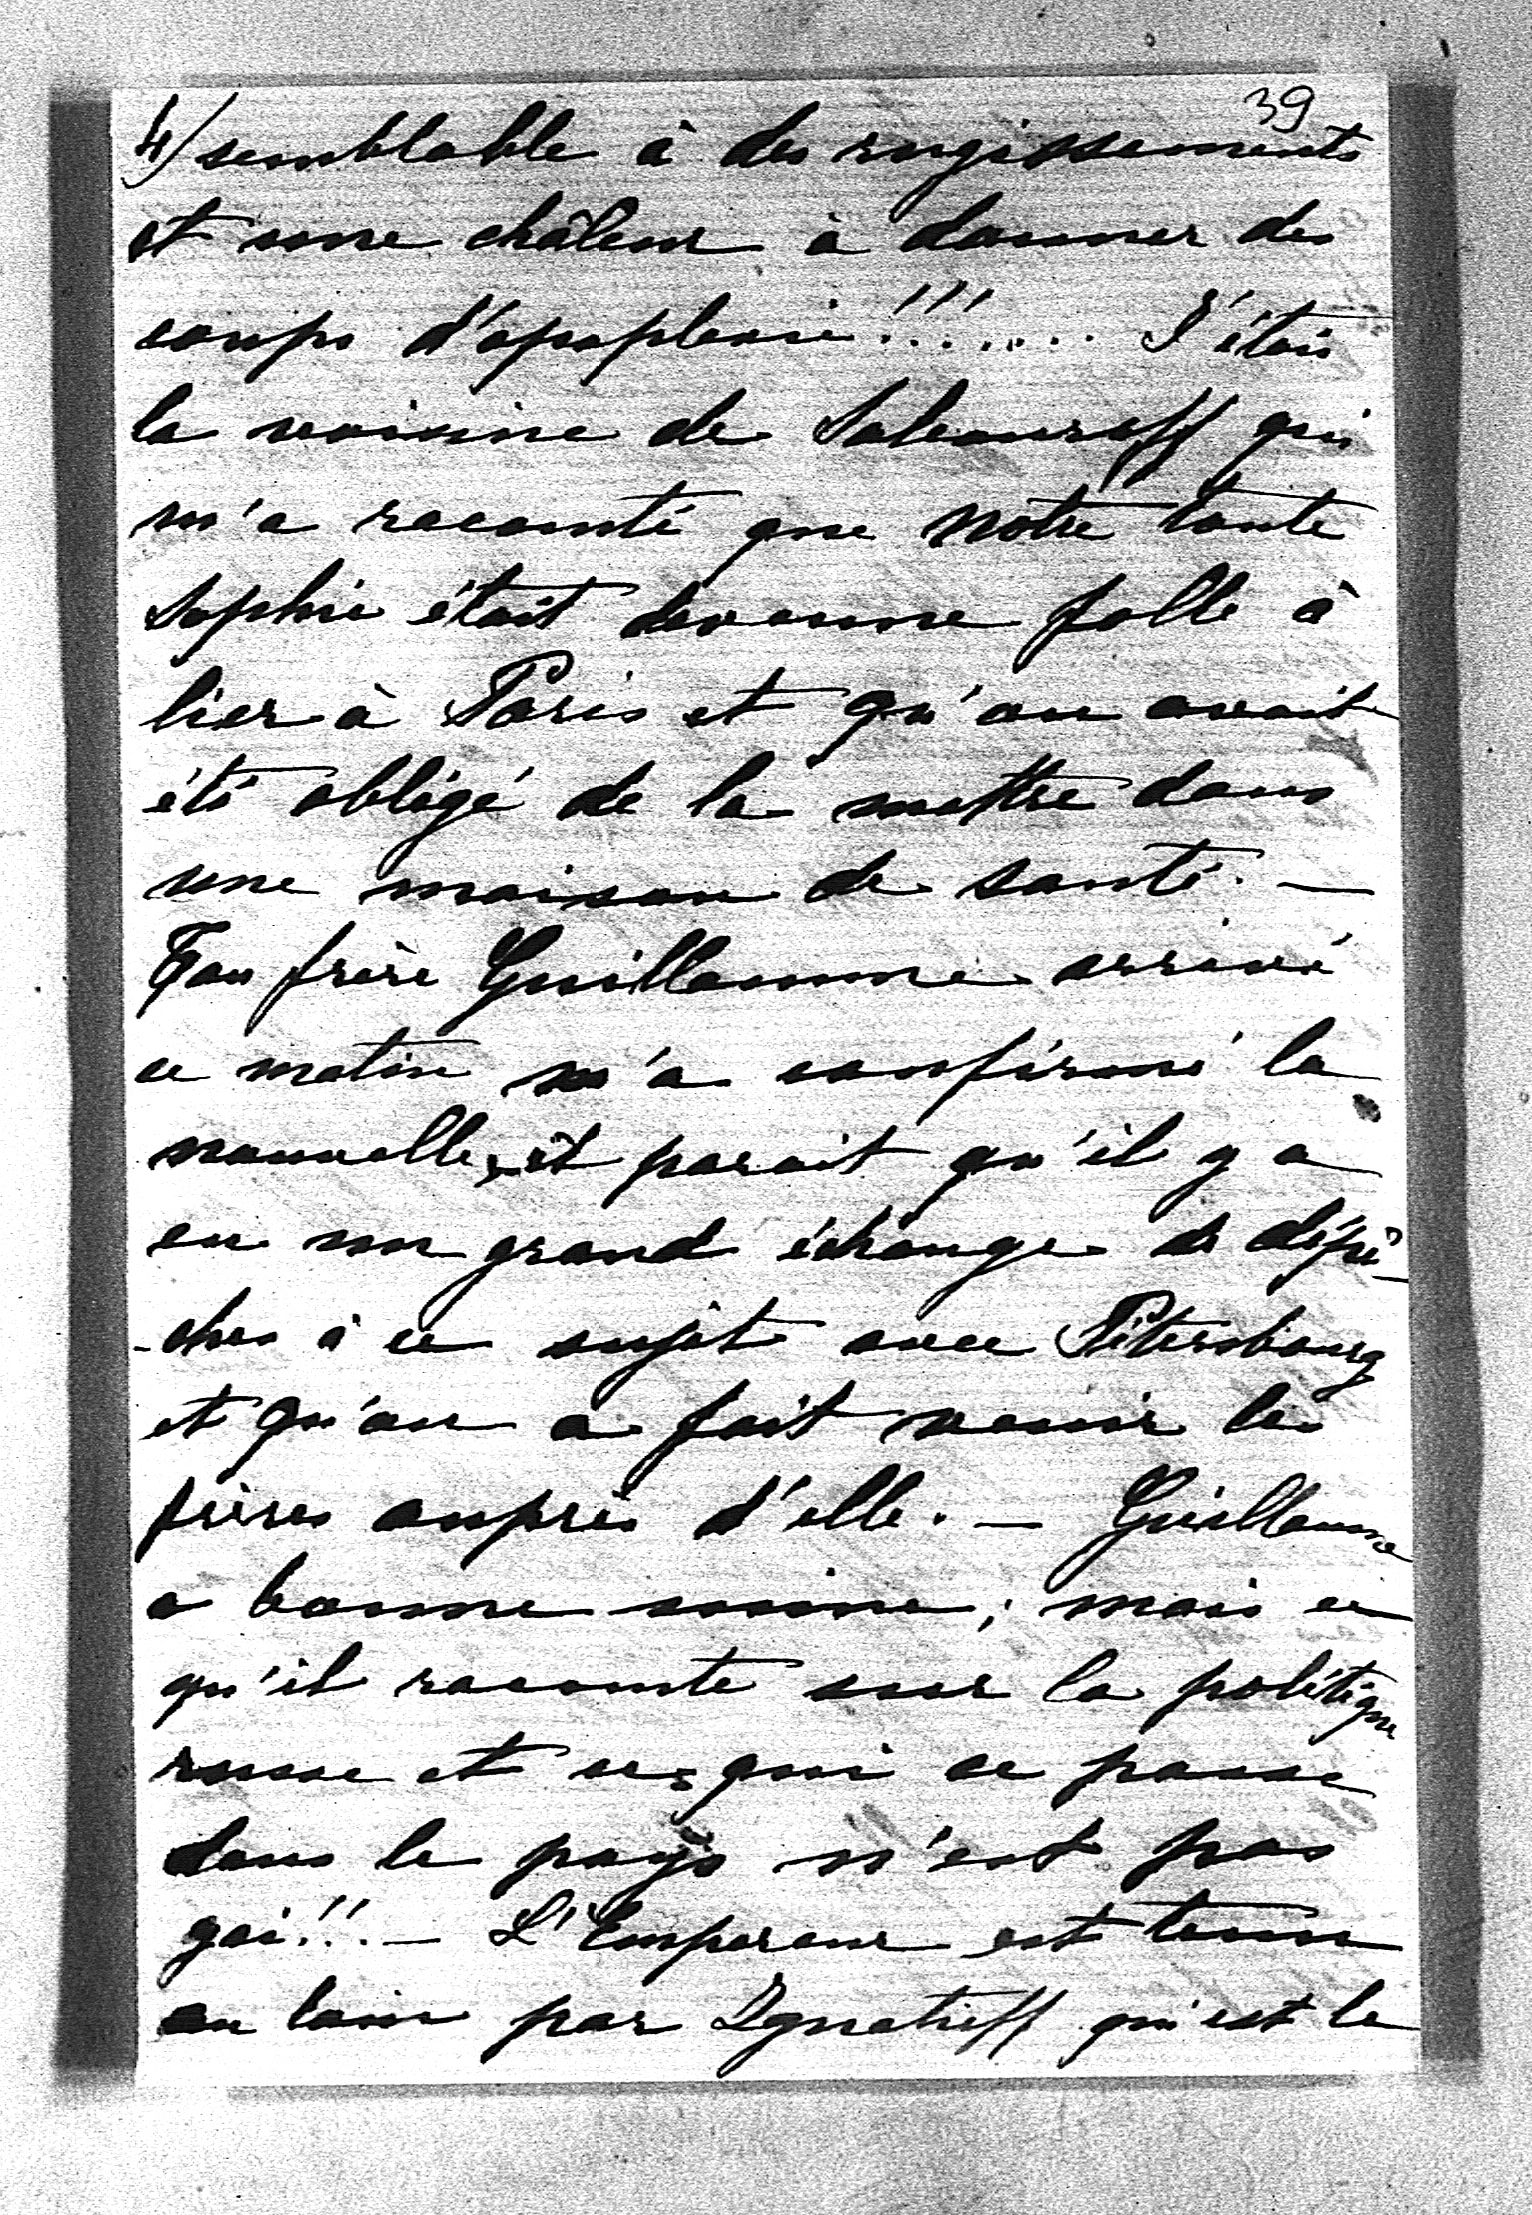 39
4/ semblable à des rugissements
et une châleur à donner des
coups d'apoplexie!!!..... J'étais
la voisine de Sabouroff qui
m'a raconté que nôtre tante
Sophie était devenue folle à
lier à Paris et qu'on avait
été obligé de la mettre dans
une maison de santé. —
Ton frère Guillaume arrivé
ce matin m'a confirmé la
nouvelle, il parait qu'il y a
eu un grand échange de dépê-
-ches à ce sujet avec Pétersbourg
et qu'on a fait venir les
frères auprès d'elle. — Guillaume
a bonne mine; mais ce
qu'il raconte sur la politique
russe et ce qui se passe
dans le pays n'est pas
gai!!. — L'Empereur est tenu
au loin par Ignatieff qui est le